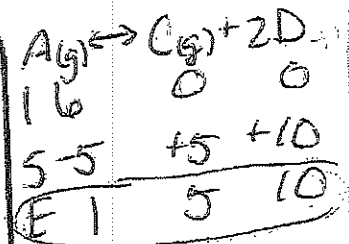 A(g) ↔ C(g) + 2D
I 6 0 0
S -5 +5 +10
E 1 5 10